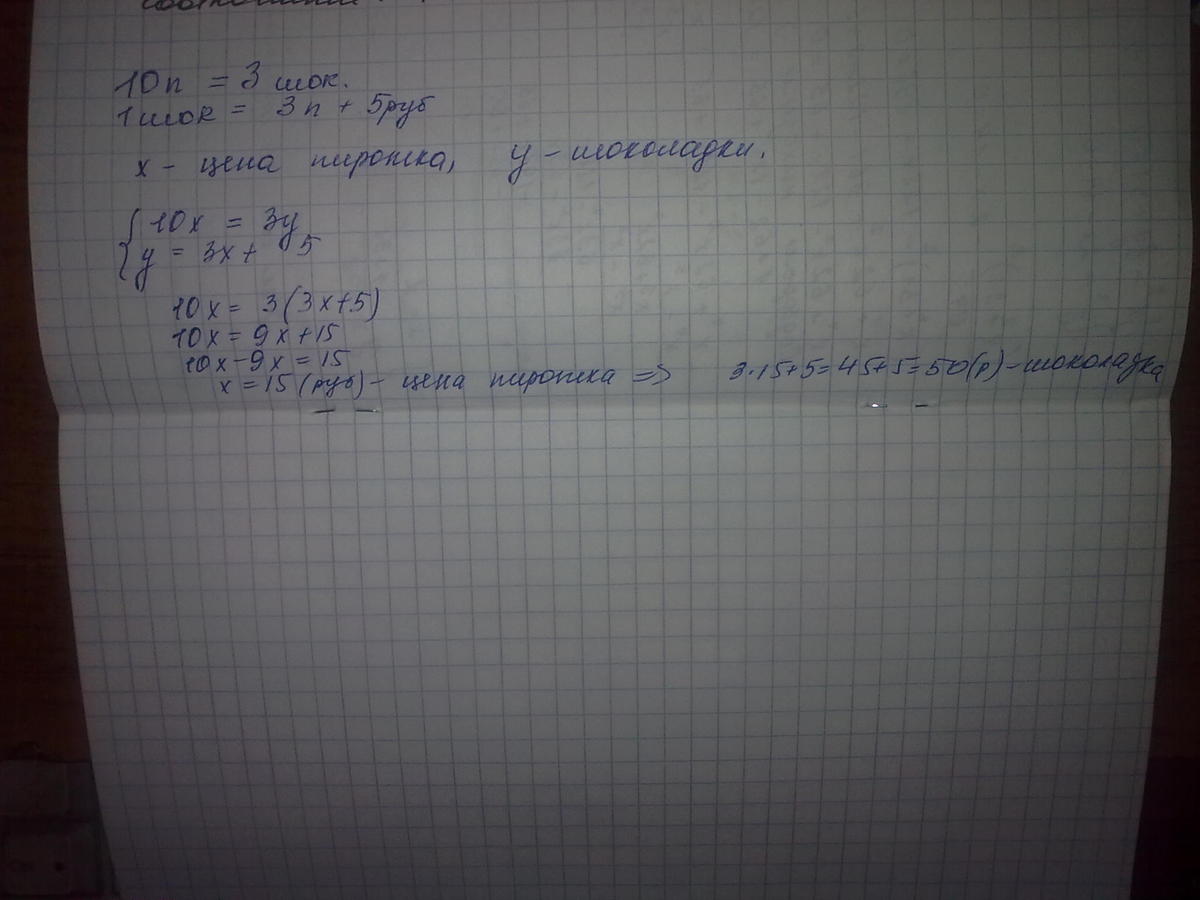 10п = 3 шок.
1шок = 3п + 5руб
x - цена пирожка, y - шоколадки.
{ 10x = 3y
y = 3x + 5
10x = 3(3x+5)
10x = 9x+15
10x-9x = 15
x = 15 (руб) - цена пирожка => 3·15+5=45+5=50(р) - шоколадка